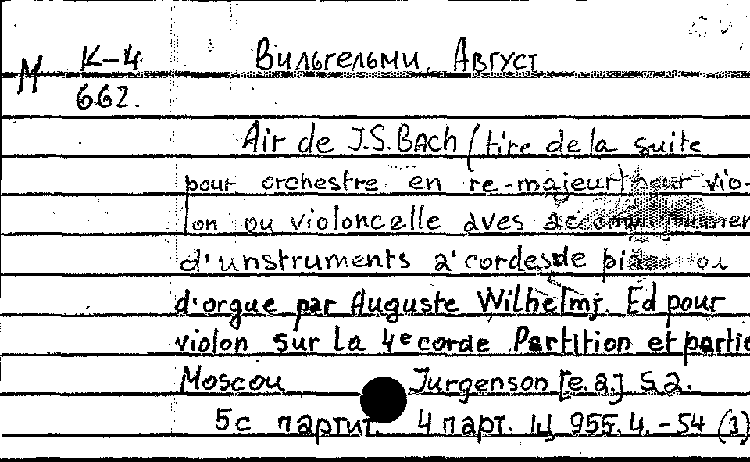 М К-4
662.
Вильгельми, Август
Air de J.S.Bach (tire de la suite
pour orchestre en re-majeur) pour vio-
lon ou violoncelle aves
d'unstruments a' cordes de ou
d'orgue par Auguste Wilhelmj. Ed pour
violon sur la 4e corde Partition et partie
Moscou Jurgenson [e.a.] S.a.
5с партит. 4 парт. Ц 955.4.-54 (1)